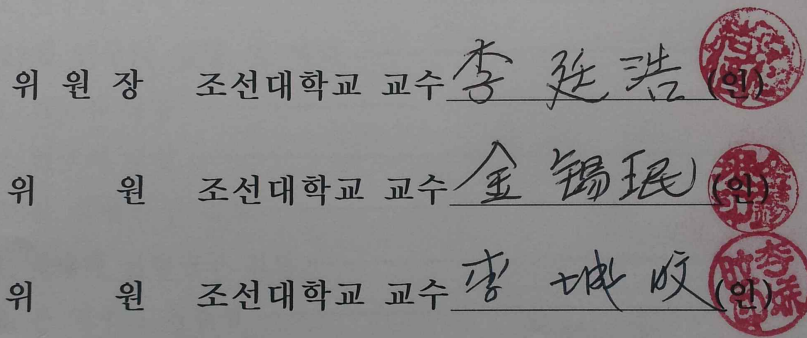 위 원 장 조선대학교 교수 李 廷 浩 (인)
위 원 조선대학교 교수 金 錫珉 (인)
위 원 조선대학교 교수 李 城 旼 (인)